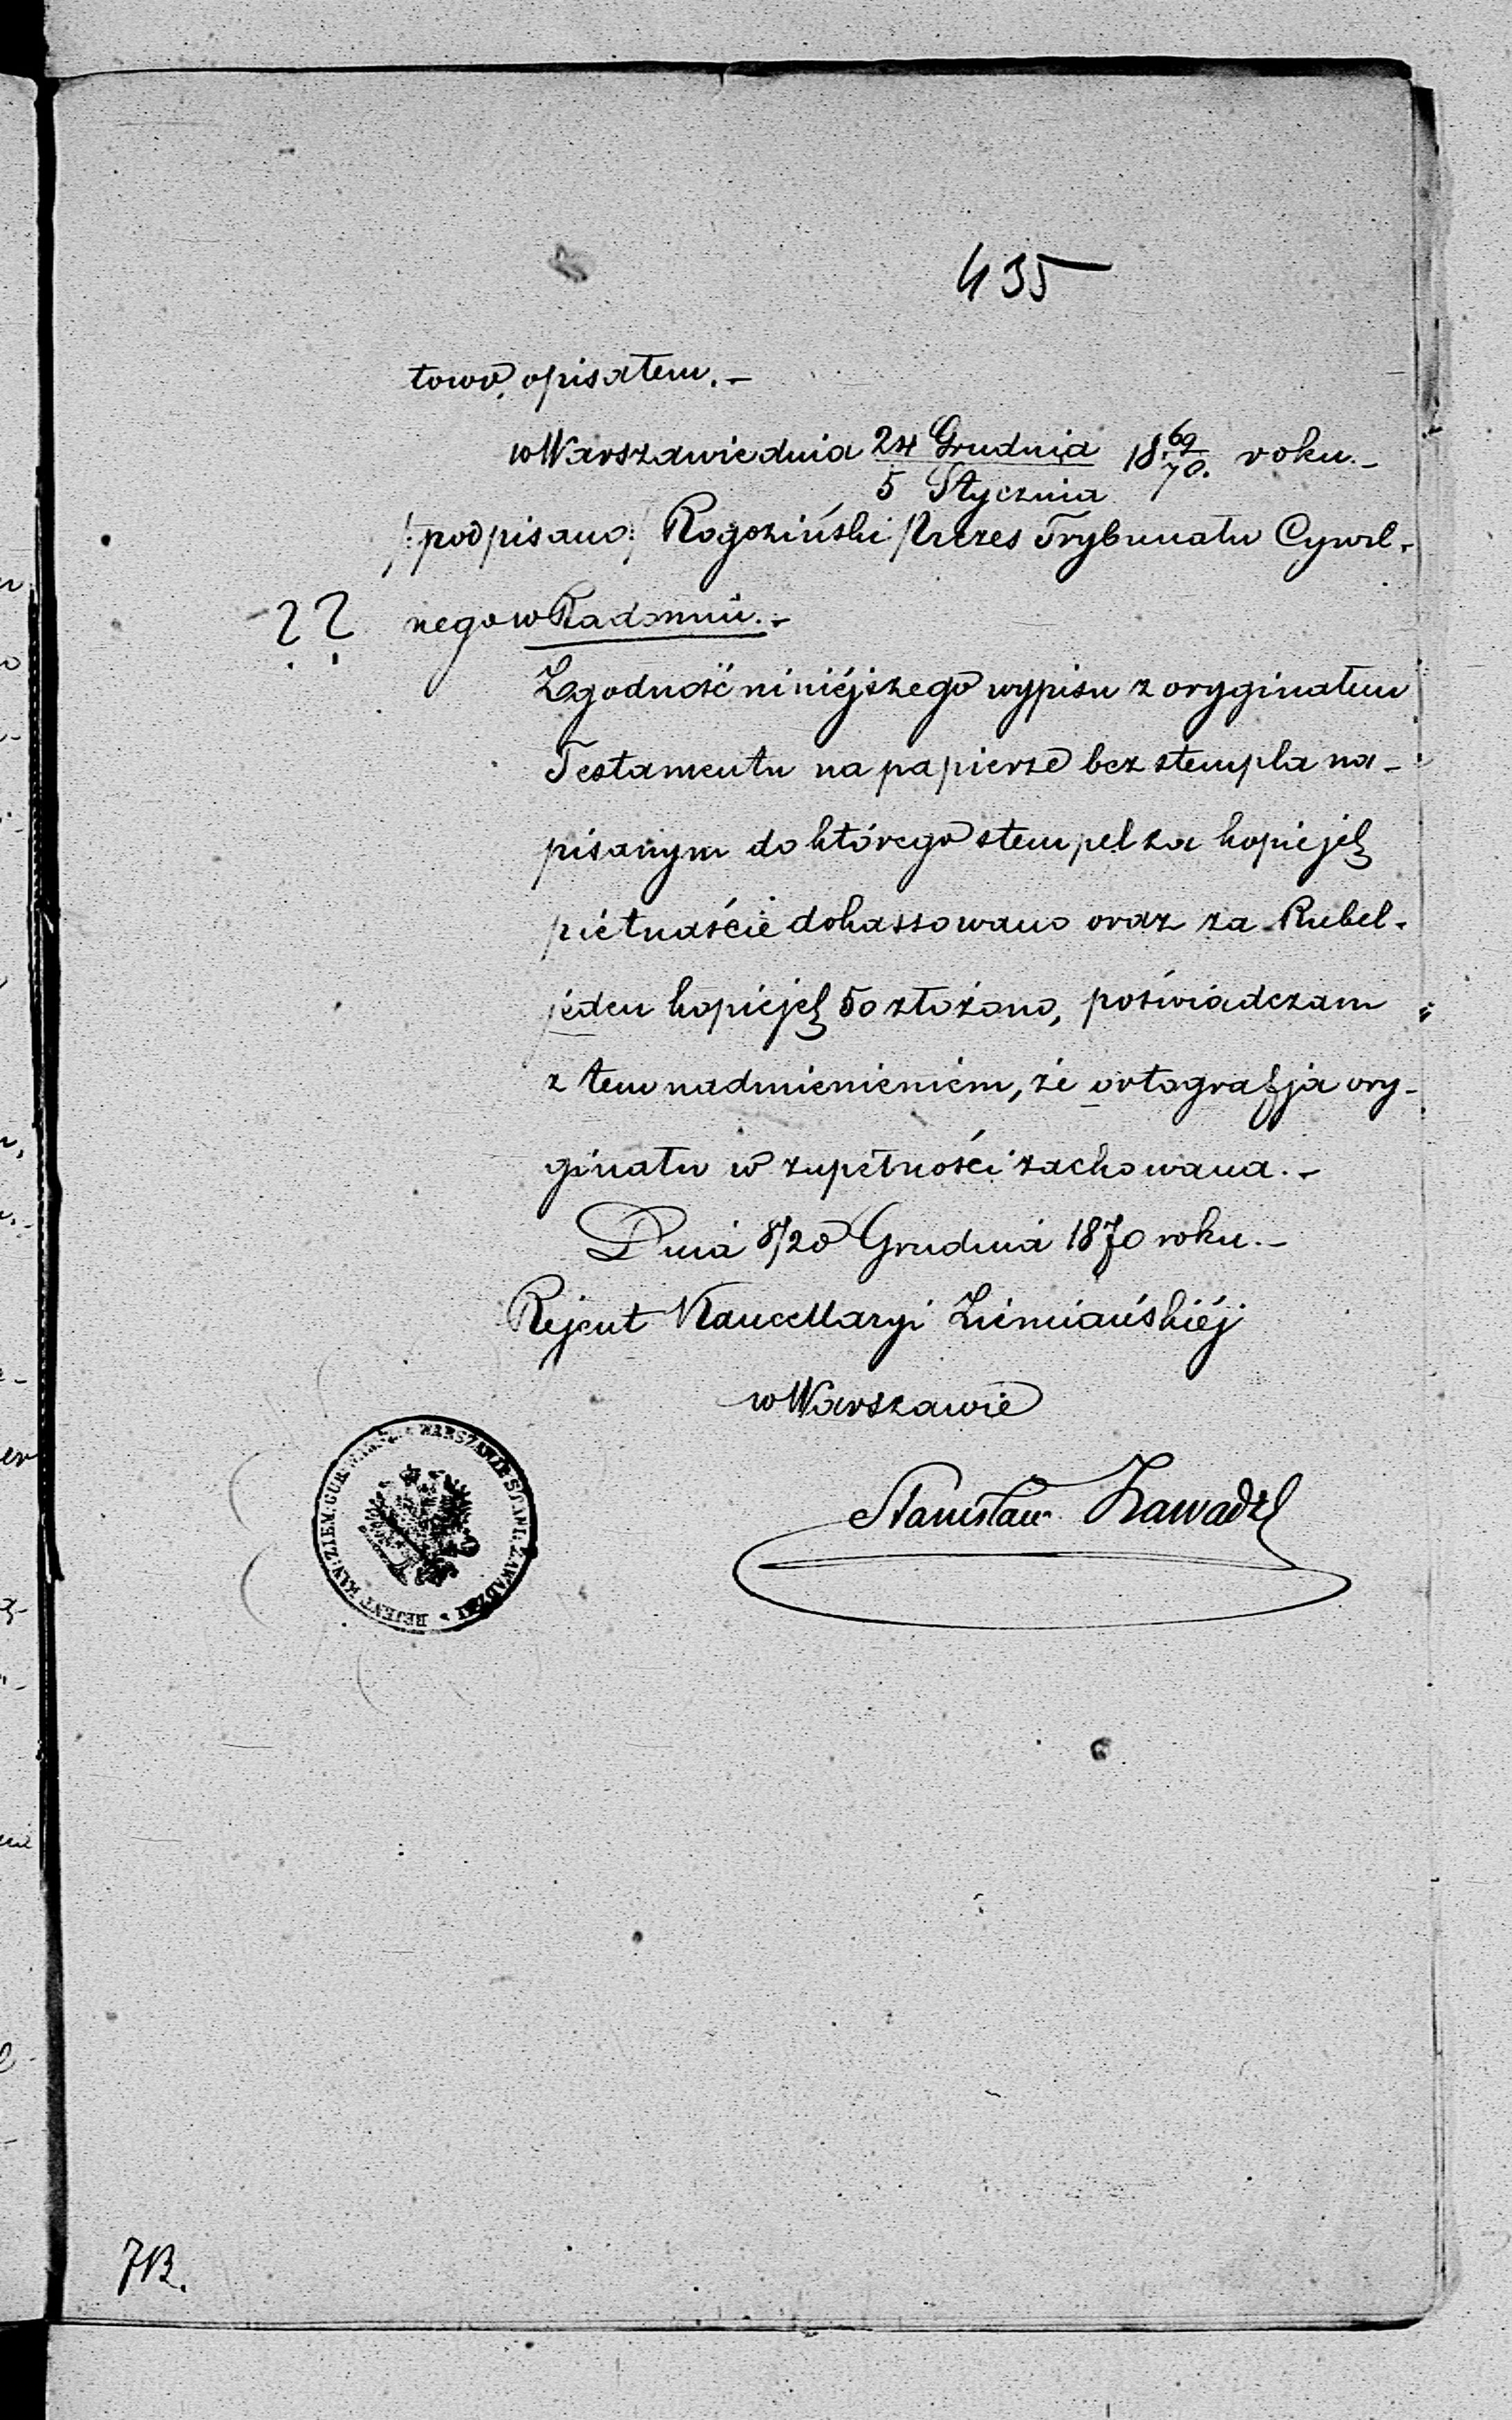 435
tową opisałem.-
w Warszawie dnia 24 Grudnia 18 69 roku.-
5 Stycznia 70.
/:podpisano:/ Rogoziński Prezes Trybunału Cywil-
?? nego w Radomiu.-
Zgodność niniéjszego wypisu z oryginałem
Testamentu na papierze bez stempla na-
pisanym do którego stempel za kopiejek
piétnaście dokassowano oraz za Rubel-
jeden kopiejek 50 złożono, poświadczam
z tem nadmienieniem, że ortografja ory-
ginału w zupełności zachowana.-
Dnia 8/20 Grudnia 1870 roku.-
Rejent Kancellaryi Ziemiańskiéj
w Warszawie
Stanisław Zawadzk
REJENT KAN: ZIEM: GUB: WARSZ: w WARSZAWIE STANI: ZAWADZKI